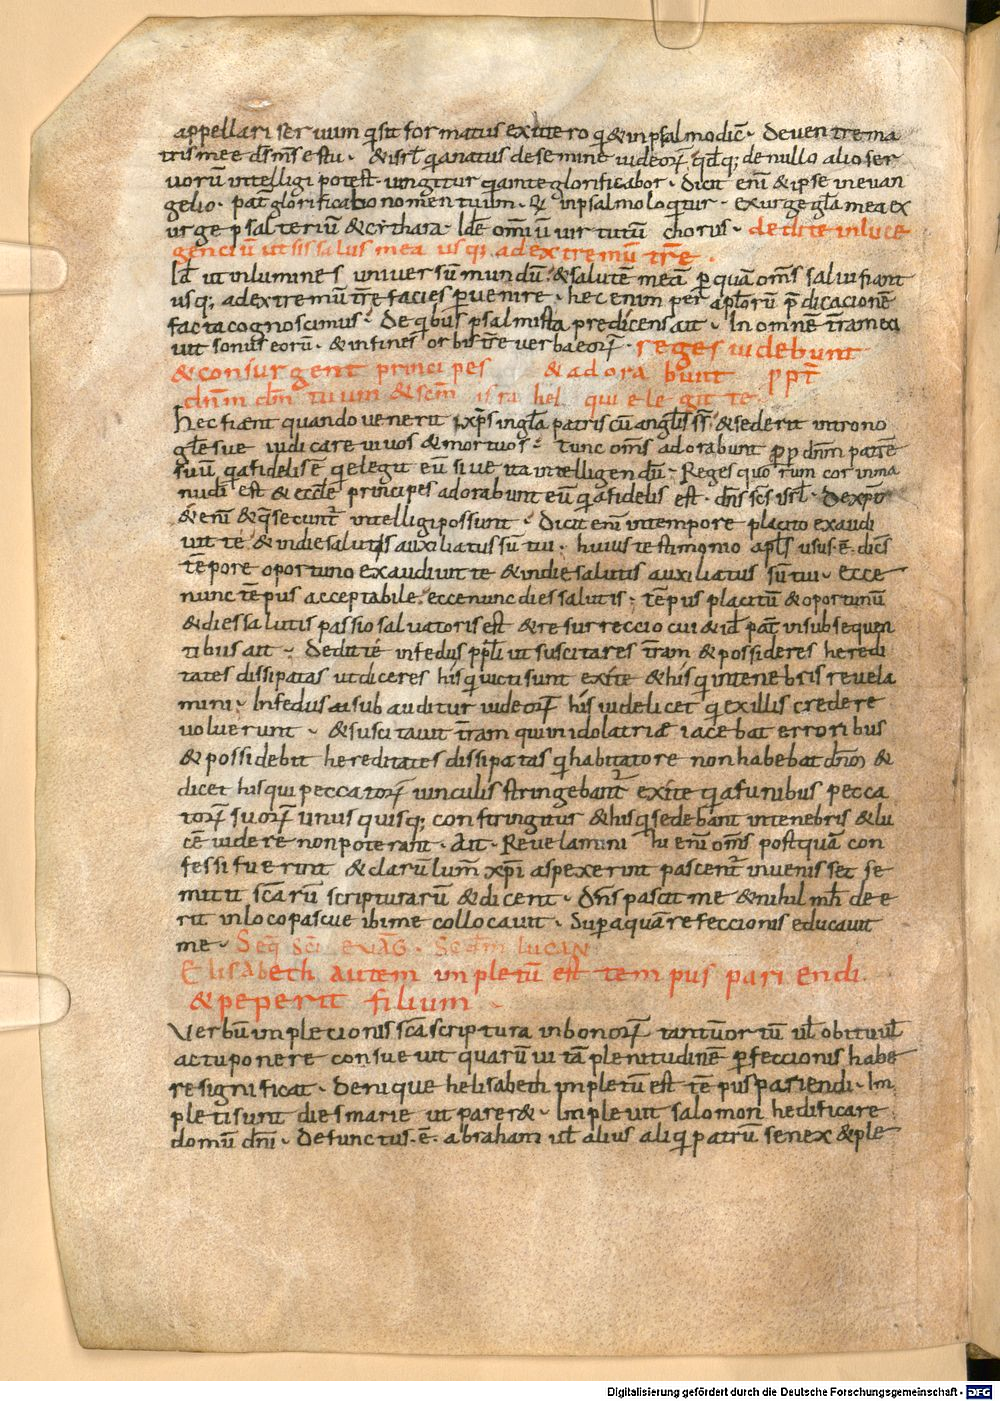 appellari seruum qͥ sit formatus ex utero qͥ & in psalmo dic̄ · De uentre ma
tris meę ds̄ ms̄ es tu · & isrl̄ qͥa natus de semine iudeorꝝ qd̄ q; de nullo alio ser
uorū intelligi potest · ungitur qͥa in te glorificabor · Dicit enī & ipse in euan
gelio · pat̄ glorifica nomen tuum · & in psalmo loqͥtur · exurge gl̄a mea ex
urge psalterium & cithara · Id ē omiū uirtutum chorus · dedi te in luce
gencium ut sis salus mea usq; ad extremū trę ·
Id ē ut inlumines uniuersum mundū · & salutē meā p quā om̄s salui fiant
usq; ad extremū tr̄e facies peruenire · hec enim per apl̄orū p̄dicacionē
facta cognoscimus · De qͥb; psalmista predicens ait · In omnē tr̄am ex
iuit sonus eorū · & in fines orbis tr̄e uerba eorꝝ · reges uidebunt
& consurgent principes & adorabunt ppt̄
dnm̄ dm̄ tuum & sc̄m israhel qui elegit te ·
Hec fient quando uenerit xp̄s in gl̄a patris cū angl̄is ss̄ · & sederit in trono
gl̄e sue iudicare uiuos & mortuos · tunc om̄s adorabunt pp dnm̄ patrē
suū qͥa fidelis ē qͥ elegit eū siue ita intelligendū · Reges quorum cor in ma
nu dī est & eccl̄e principes adorabunt eū qͥa fidelis est · dn̄s sc̄s isrl̄ · De xp̄o
& enī & q̄ secunt̄ intelligi possunt · Dicit enī in tempore placito exaudi
uit te & in die salutis auxiliatus sū tui · huius testimonio apl̄s usus ē dicēs
tēpore oportuno exaudiuit te & in die salutis auxiliatus sū tui · ecce
nunc tēpus acceptabile · ecce nunc dies salutis · tēpus placitū & oportunū
& dies salutis passio saluatoris est & resurreccio cui & id̄ pat̄ in subsequen
tibus ait · Dedi te in fedus ppl̄i ut suscitares tr̄am & possideres heredi
tates dissipatas ut diceres his qͥ uicti sunt exite & his qͥ in tenebris reuela
mini · In fedus aī subauditur iudeorꝝ his uidelicet qͥ ex illis credere
uoluerunt · & suscitauit tr̄am qui in idolatria iacebat erroribus
& possidebit hereditates dissipatas qͥ habitatore non habebat dn̄m &
dicet his qui peccatorꝝ uinculis stringebant̄ exite qͥa funibus pecca
torꝝ suorꝝ unusquisq; constringitur & his qͥ sedebant in tenebris & lu
cē uidere non poterant · Ait · Reuelamini hi enī om̄s postquā con
fessi fuerint & clarū lum̄ xp̄i aspexerint pascent̄ in uenisset se
mitu sc̄arū scripturarū & dicent · Dn̄s pascit me & nihil mh̄ dee
rit in loco pascue ibi me collocauit · Sup aquā refeccionis educauit
me · Seq̄ sc̄i euāg · Secdm̄ lucan
Elisabeth autem inpletū est tempus pariendi ·
& peperit filium ·
Verbū inplecionis sc̄a scriptura in bonorꝝ tantū ortum ul̄ obitu ul̄
actu ponere consueuit quarū uitā plenitudinē pfeccionis habe
re significat · Denique helisabeth inpletū est tēpus pariendi · Im
pleti sunt dies marie ut parer& · Impleuit salomon hedificare
domū dn̄i · Defunctus ē abraham ul̄ alius aliqͥ patrū senex & ple
Digitalisierung gefördert durch die Deutsche Forschungsgemeinschaft - DFG